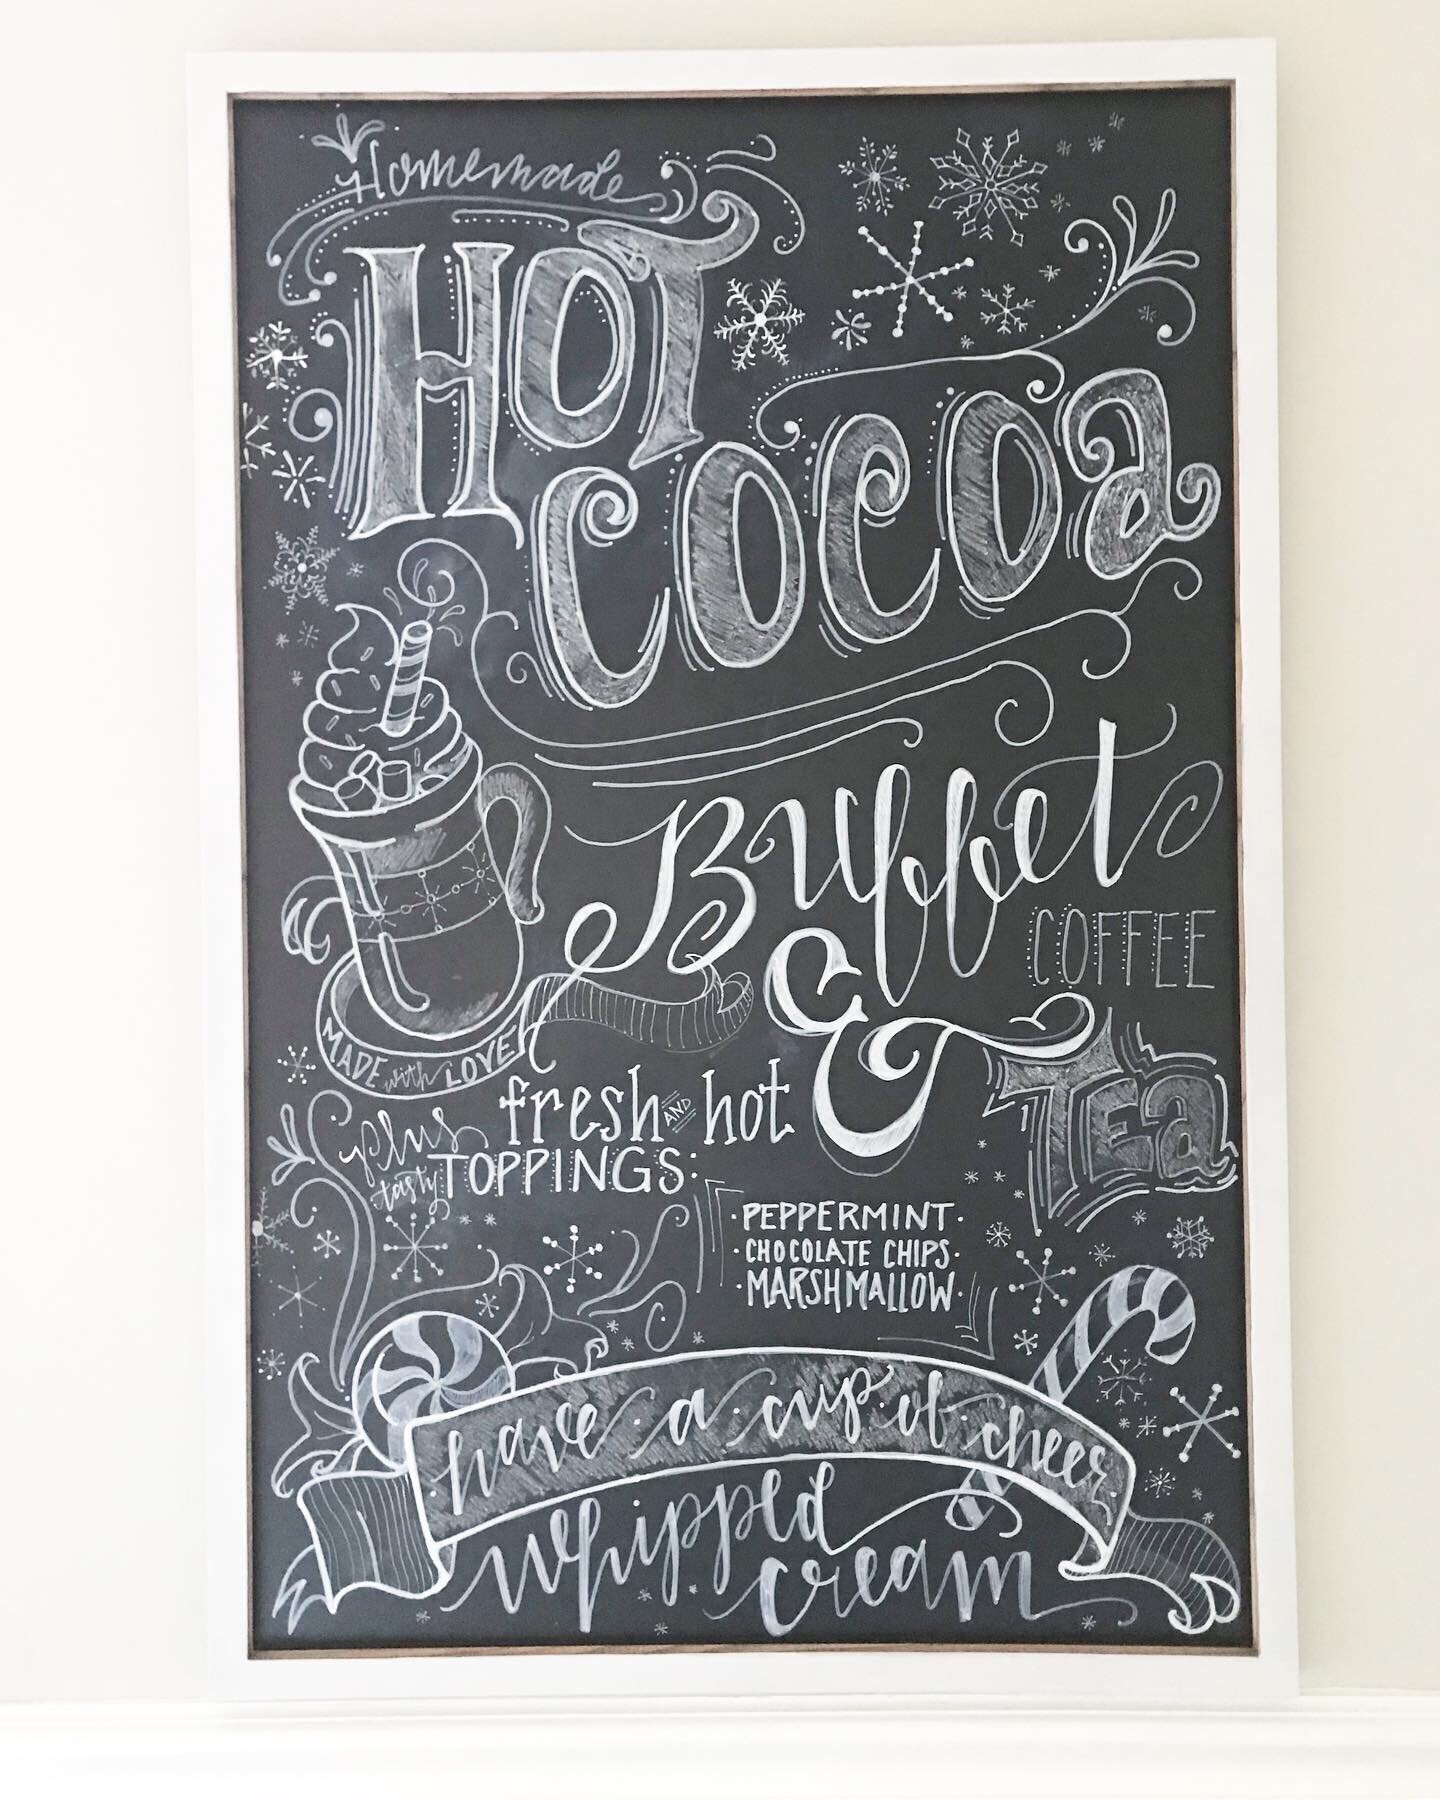 Homemade
HOT
COCOa
Buffet
COFFEE
&
TEa
MADE with LOVE
fresh AND hot
plus
tasty TOPPINGS:
·PEPPERMINT·
·CHOCOLATE CHIPS·
·MARSHMALLOW·
have·a·cup·of·cheer
whipped
cream